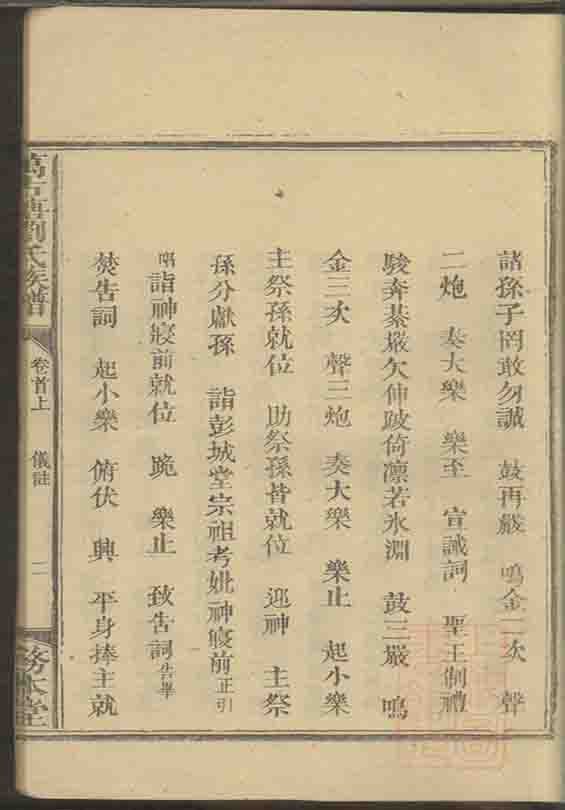 諸孫子罔敢勿誠　鼓再嚴　鳴金二次　聲
二炮　奏大樂　樂至　宣誡詞　聖王制禮
駿奔綦嚴欠伸跛倚凛若氷淵　鼓三嚴　鳴
金三次　聲三炮　奏大樂　樂止　起小樂
主祭孫就位　助祭孫皆就位　迎神　主祭
孫分獻孫　詣彭城堂宗祖考妣神寢前正引
唱詣神寢前就位　跪　樂止　致告詞告畢
焚告詞　起小樂　俯伏　興　平身捧主就
劉氏族譜
卷首上　儀註　二
務本堂